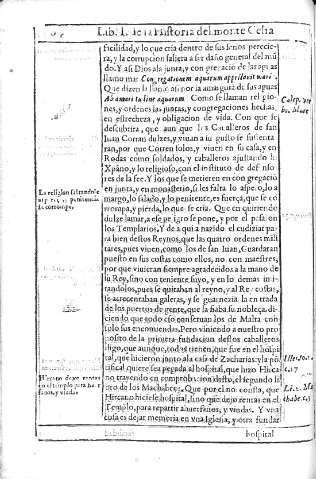 Lib. I. de la Historia del monte Celia
facilidad, y lo que cria dentro de sus senos perecie-
ra, y la corrupcion saliera a ser daño general del mũ
do. Y assi Dios ala junta, y con gregacio de las aguas
llamo mar. Congregationem aquarum appellavit mari.
Que dizen la llamo assi por la amargura de sus aguas
Ab amaritudine aquarum. Como se llaman religio-
nes, y ordenes las juntas, y congregaciones hechas,
en estrecheza, y obligacion de vida. Con que se
descubrira, que aun que los Cavalleros de san
Iuan Corran dulzes, y vivan a su gusto se sustenta
ran, por que Corren solos, y viven en su casa, y en
Rodas como soldados, y caballeros ajustando lo
Xpiano, y lo religioso, con el instituto de defenso
res de la fee. Y los que se metieren en congregacio
en junta, y en monasterio, si les falta lo aspero, lo a
margo, lo salado, y lo penitente, es fuerça, que se co
rrompa, y pierda, lo que se cria. Que en querer de
dulze
los Templarios. Y de a qui a nazido el
bien destos Reynos, que las quatro ordenes mili
tares, pues viven, como los de san Iuan,
puesto en sus costas como ellos, no con maestres,
por que vivieran siempre agradecidos a la mano de
su Rey, sino con teniente suyo, y en lo demas imi-
tandolos, pues se quitaban al reyno, y al Rey costas,
se acrecentaban galeras, y se guarnecia la entrada
de los puertos de gente, que la haria su nobleza, di-
ciendo que todo esso sustentan los de Malta con
solo sus encomiendas. Pero viniendo a nuestro pro
posito de la primera fundacion destos caballeros
digo, que aunque, todos tienen, que fue en el hospi
tal, que hicieron junto ala casa de Zacharias: y la
hospital, que hizo Hirca
no, trayendo en comprobacion desto, el segundo li
bro de los Machabeos. Que por el no consta, que
Hircano hiciese hospital, sino que dejo rentas en el
Templo, para repartir a huerfanos, y viudas. Y
cosa es dejar memoria en una Iglesia, y otra fundar
hospital
La religion faltandole
penitencia
se corrompe.
Hircano dejo rentas
en el templo para
fanos, y viudas
c. 17
Li. 2. Ma
chabe. c. 3